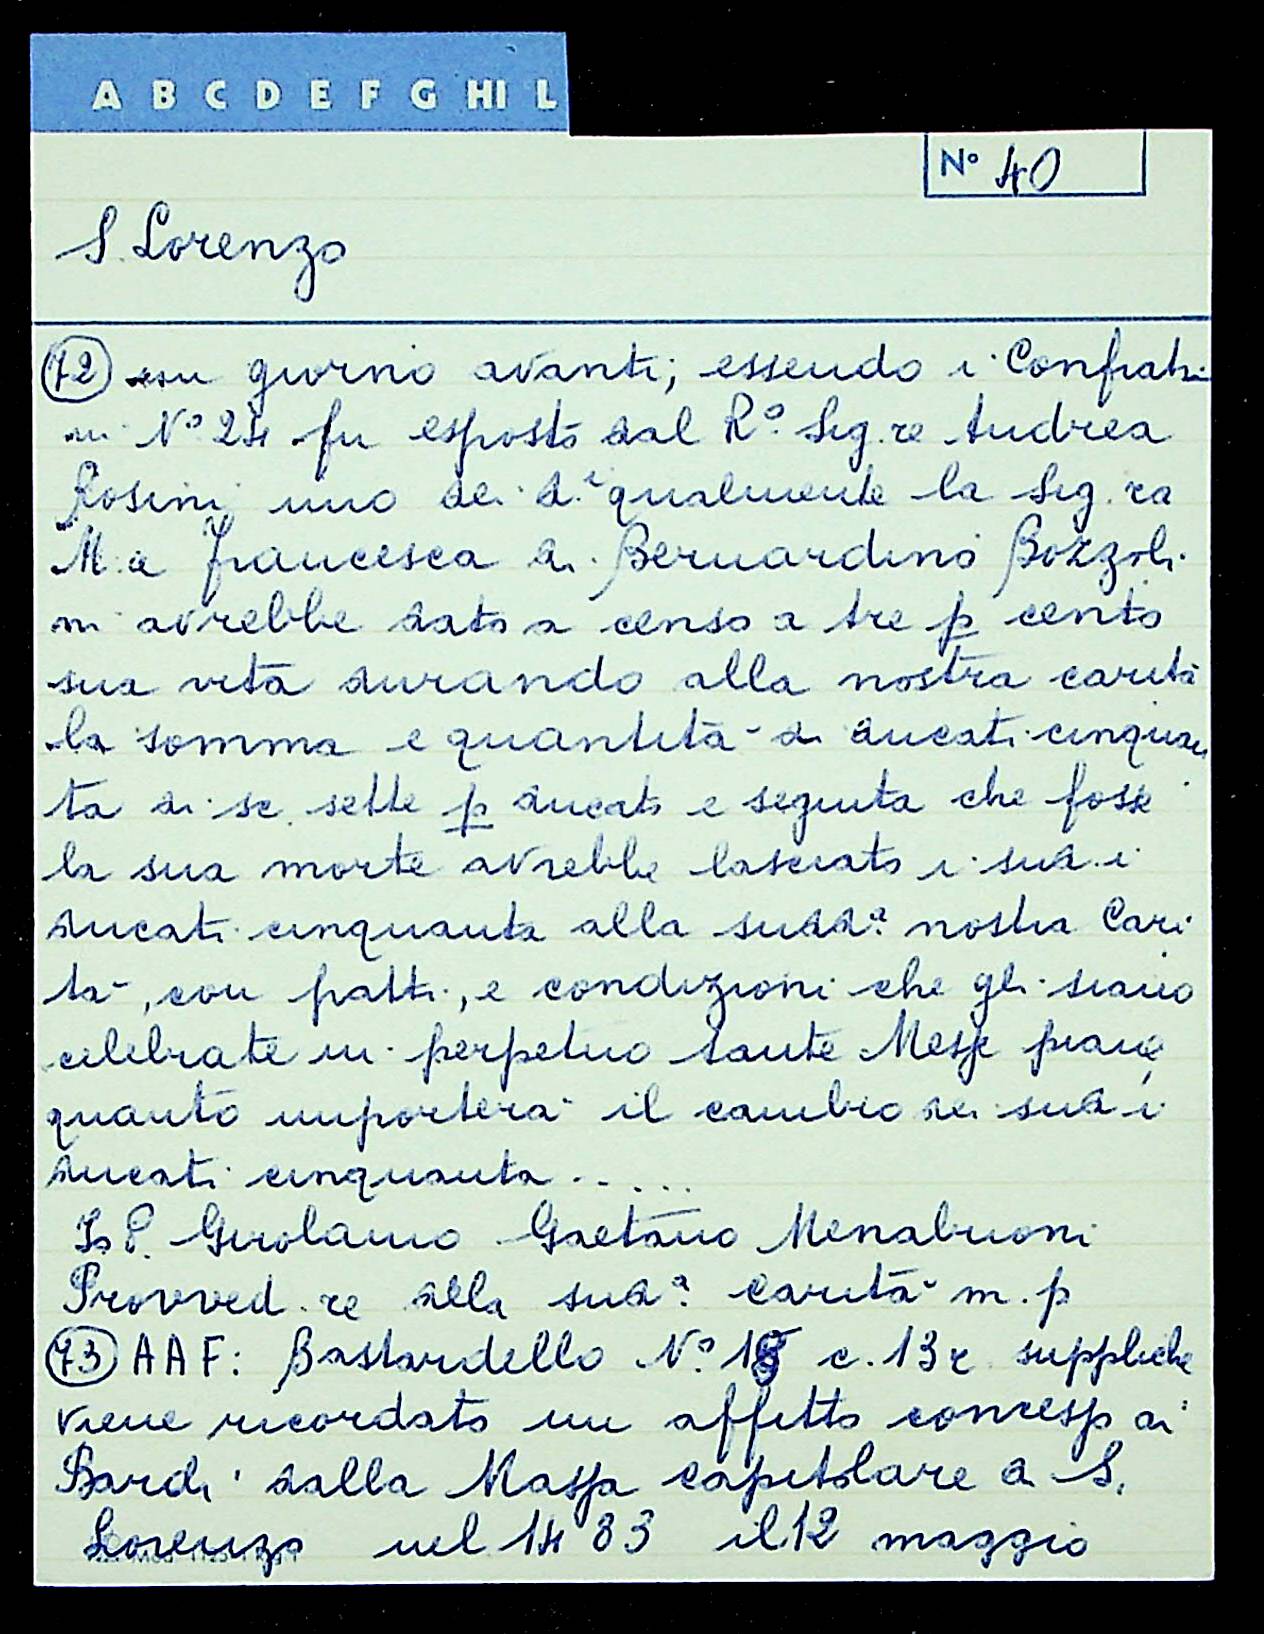 A B C D E F G HI L
N° 40
S. Lorenzo
72 giorno avanti; essendo i Confratri
in N° 24 fu esposto dal R.° Sig.re Andrea
Rosini uno dei d.i qualmente la Sig.ra
M.a Francesca di Bernardino Bozzoli
ni avrebbe dato a censo a tre p cento
sua vita durando alla nostra carità
la somma e quantità di ducati cinquan
ta di sc. sette p ducato e seguita che fosse
la sua morte avrebbe lasciato i sud.i
ducati cinquanta alla sudd.a nostra Cari
tà, con patti, e condizioni che gli siano
celebrate in perpetuo sante Messe piane
quanto importerà il cambio dei sud.i
ducati cinquanta......
Io P. Girolamo Gaetano Menabuoni
Provved.re della sud.a carità m.p
73 AAF: Bastardello N.° 18 c. 13r suppliche
viene ricordato un affitto concesso ai
Bardi dalla Massa capitolare di S.
Lorenzo nel 1483 il 12 maggio